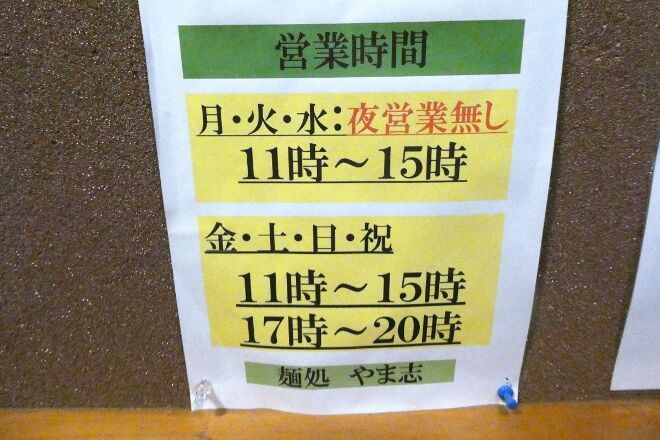 営業時間
月・火・水：夜営業無し
11時～15時
金・土・日・祝
11時～15時
17時～20時
麺処 やま志